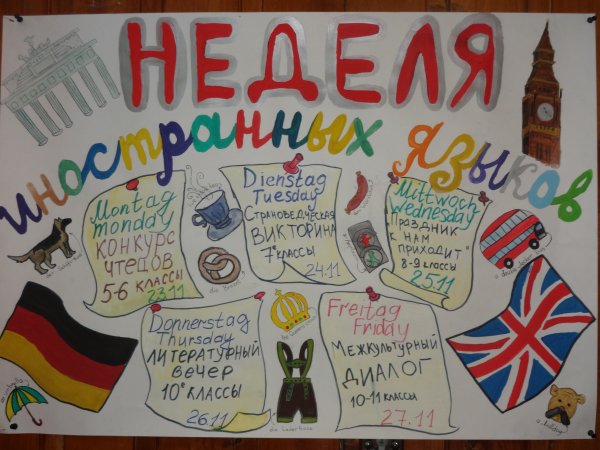 НЕДЕЛЯ
иностранных языков
Montag
monday
КОНКУРС
ЧТЕЦОВ
5-6 КЛАССЫ
23.11
Dienstag
Tuesday
СТРАНОВЕДЧЕСКАЯ
ВИКТОРИНА
7е КЛАССЫ
24.11
Mittwoch
Wednesday
"ПРАЗДНИК
К НАМ
ПРИХОДИТ"
8-9 КЛАССЫ
25.11
Donnerstag
Thursday
ЛИТЕРАТУРНЫЙ
ВЕЧЕР
10е КЛАССЫ
26.11
Freitag
Friday
МЕЖКУЛЬТУРНЫЙ
ДИАЛОГ
10-11 КЛАССЫ
27.11
die Brezel
a double decker
an umbrella
die Lederhose
a bulldog